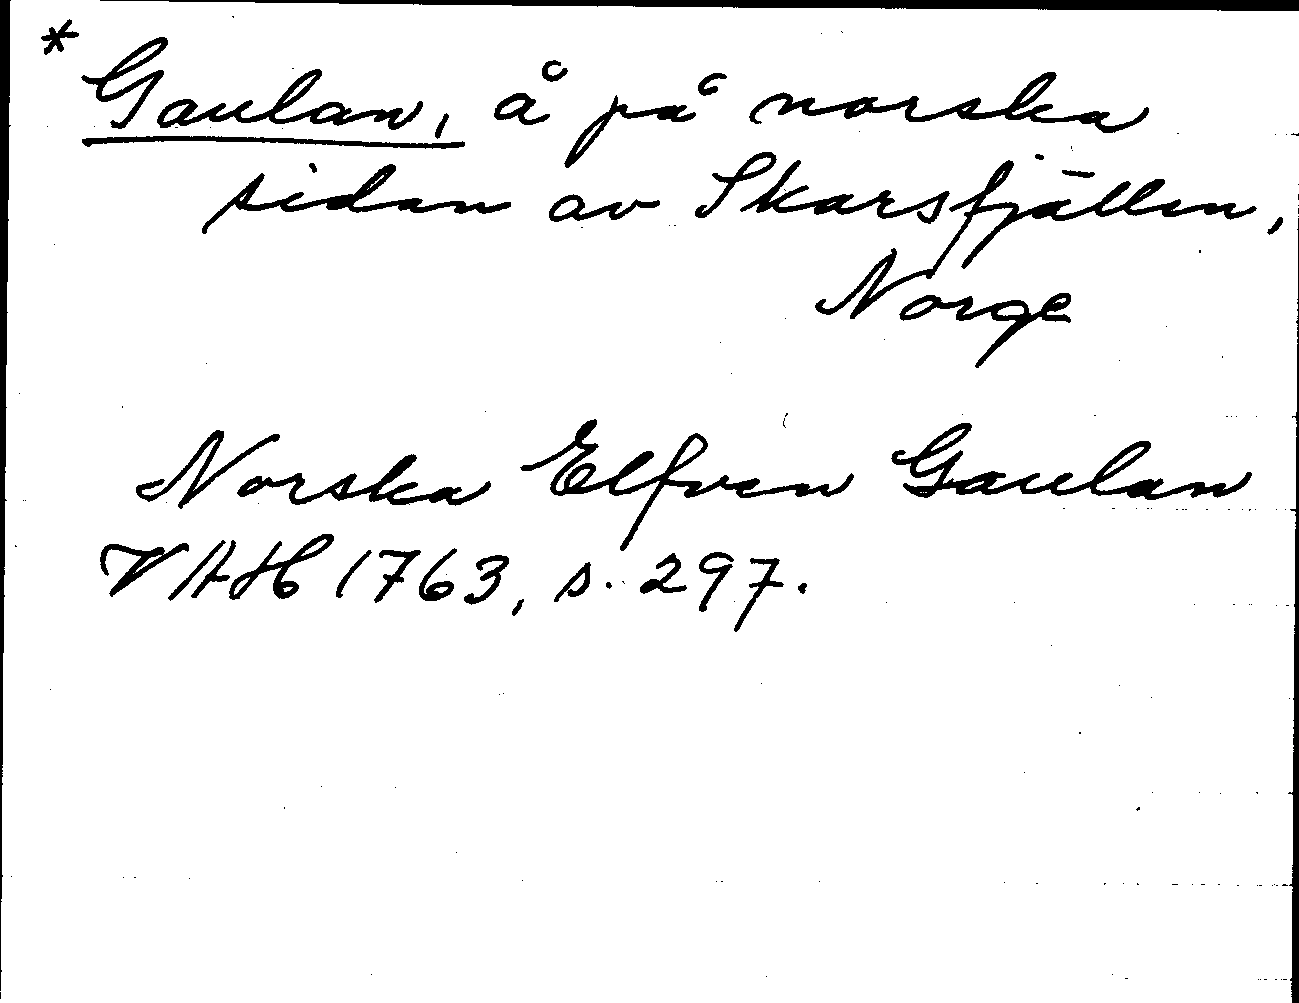 * Gaulan, å på norska
sidan av Skarsfjällen,
Norge
Norska Elfven Gaulan
VAH 1763, s. 297.